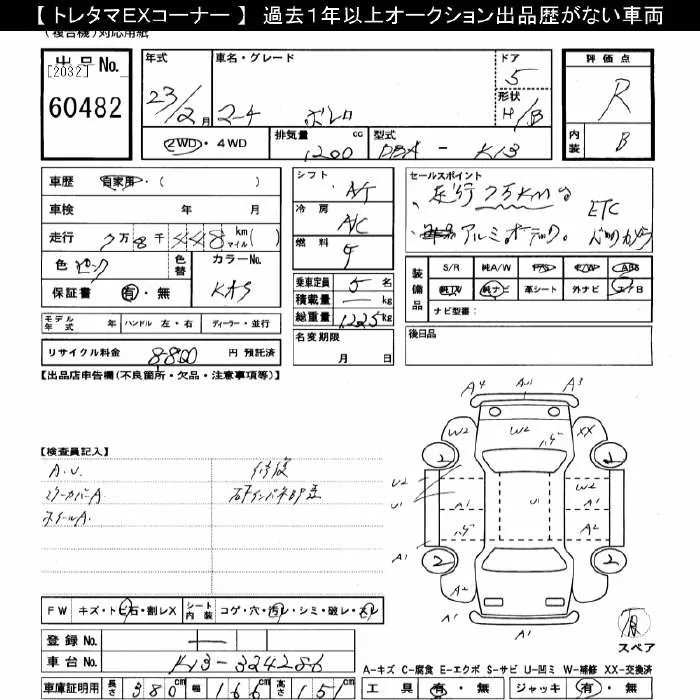 【 トレタマEXコーナー 】 過去1年以上オークション出品歴がない車両
(複合機)対応用紙
出品No. [2032]
60482
年式 23/2月
車名・グレード マーチ ボレロ
ドア 5
形状 H/B
2WD・4WD
排気量 1200 cc
型式 DBA - K13
評価点 R
内装 B
車歴 自家用・( )
車検 年 月
走行 7万8千448 km マイル( )
色 ピンク 色替 カラーNo.
保証書 有・無
モデル年式 年 ハンドル 左・右 ディーラー・並行
リサイクル料金 8800 円 預託済
シフト A/T
冷房 A/C
燃料
乗車定員 5 名
積載量 ― kg
総重量 1225 kg
名変期限
月 日
セールスポイント
走行7万KM台
アルミ オーディオ。
ETC
バックカメラ
装備品 S/R 純A/W P/S P/W ABS
純TV 純ナビ 革シート 外ナビ エアB
ナビ型番:
後日品
【出品店申告欄(不良箇所・欠品・注意事項等)】
【検査員記入】
A.U. 修復
ホイールA.
A4 AU1 A3
W2 W2 XX
2 2
U2 W2
U1 A1 U1 A1
A2
A1
2 2
A2 A2
A1
FW キズ・トビ石・割レX シート内装 コゲ・穴・汚レ・シミ・破レ・スレ
登録No.
車台No. K13-324286
車庫証明用 長さ 380 cm 幅 166 cm 高さ 151 cm
スペア
A-キズ C-腐食 E-エクボ S-サビ U-凹ミ W-補修 XX-交換済
工具 有・無 ジャッキ 有・無